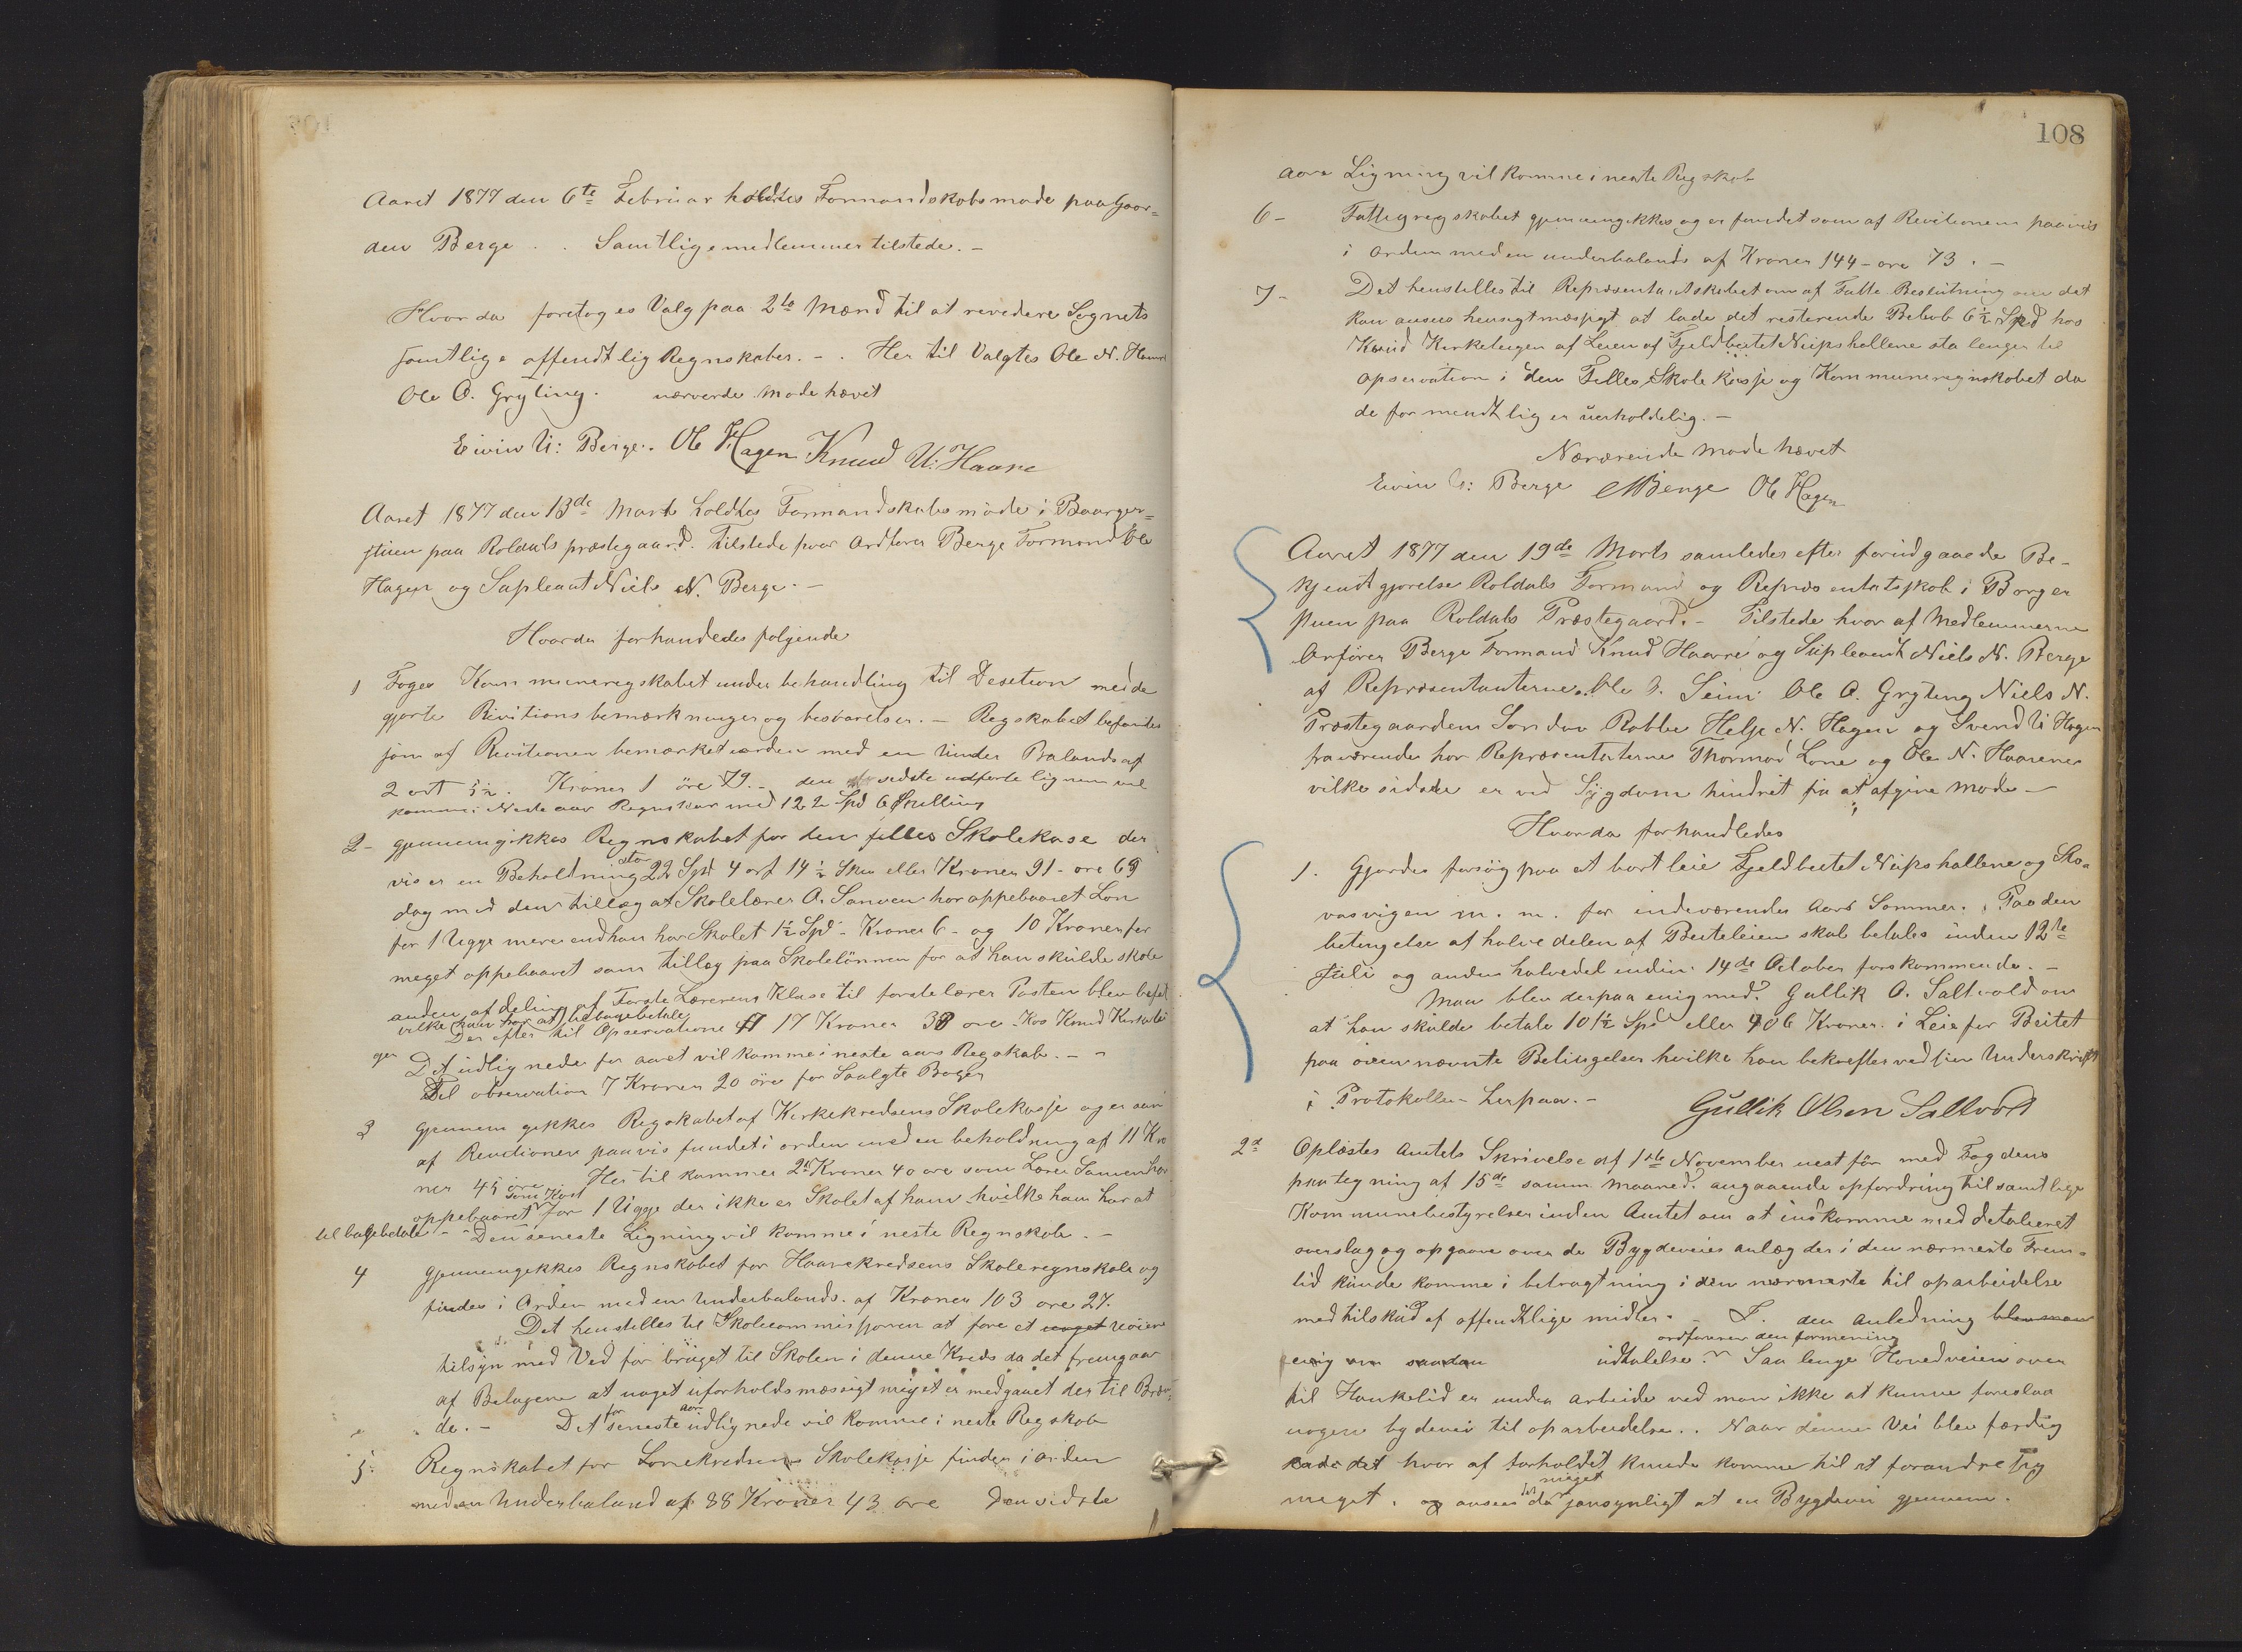 Aaret 1877 den 6te Februar holdtes Formandskabsmøde paa Gaar=
den Berge . . Samtlige medlemmer tilstede. -
Hvor da foretoges Valg paa 2to Mænd til at revidere Sognets
samtlige offendtlig Regnskaber. - . Her til Valgtes Ole N. Haavr
Ole O. Gryting. nærverde møde hævet
Eivin U: Berge. Ole Hagen Knud U: Haare
Aaret 1877 den 13de Marts holdtes Formandskabs møde i Baarger=
stuen paa Roldals præstegaard. Tilstede hvar Ordfører Berge Formand Ole
Hagen og Supleant Niels N. Berge. -
Hvorda forhandledes følgende
1 Toges Kommuneregskabet under behandling til Desetion med de
gjorte Rivitions bemærkninger og besvarelser. - Regskabet befandtes
som af Revitionen bemærket i orden med en Under Balands af
2 ort 5½. Kroner 1 öre 79. - den sidste udførte lignin vil
komme i Neste aar Regnskar med 122 Spd 6 Skilling
2 - gjennemgikkes Regnskabet for den felles Skolekase der
vis er en Beholdning stor 22 Spd 4 ort 14½ Sku eller Kroner 91 - ore 69
dog med den tillæg at Skolelærer O. Sanven har oppebaaret Løn
for 1 Ugge mere end han har Skolet 1½ Spd - Kroner 6 - og 10 Kroner for
meget oppebaaret som tillæg paa Skolelönnen for at han skulde skole
anden afdeling af Første Lærerens Klase til førstelærer Posten blev besat
vilke han har at tilbagebetale
Der efter til Opservatione 17 Kroner 38 ore - Hos Knud Kirkelei
ger Det udlignede for aaret vil komme i neste aars Regskab. - -
Til observation 7 Kroner 20 öre for Saalgte Bøger
3 gjennem gikkes Regskabet af Kirkekredsens Skolekasje og er som
af Revitionen paavis fundet i orden med en beholdning af 11 Kro
ner 45 öre. Her til kommer 2 Kroner 40 ore som Lærer Sanven har
oppebaaret som Kost for 1 Ugge der ikke er Skolet af ham hvilke han har at
tilbagebetale - Den seneste Ligning vil komme i neste Regnskab. -
4 gjennemgikkes Regnskabet for Haarekredsens Skoleregnskab og
findes i Orden med en Underbalands. af Kroner 103 ore 27.
Det henstilles til Skolecommisjonen at føre et noget nöiere
tilsyn med Ved for bruget til Skolen i denne Kreds da det fremgaar
af Belagene at noget uforholdsmæssigt meget er medgaaet der til Bræn
de. - Det for seneste aar udlignede vil komme i neste Regskab
5: Regnskabet for Lonekredsens Skolekasje findes i orden
med en Underbaland af 88 Kroner 43 ore Den sidste
108
aars Ligning vil komme i neste Regskab
6 - Fattigregskabet gjennemgikkes og er fundet som af Revitionen paavis
i orden med en underbalands af Kroner 144 - ore 73 . -
7 - Det henstilles til Representantskabet om at Fatte Beslutning om det
kan ansees hensigtmæsigt at lade det resterende Beløb 6½ Spd hos
Knud Kirkeleigen af Leien af Fjeldbeitet Nupshallene sta lenger til
opservation i den Felles Skole kasje og Kommuneregnskabet da
de formendtlig er uerholdelig. -
Nærværende møde hævet
Eivin U: Berge NNBerge Ole Hagen
Aaret 1877 den 19de Marts samledes efter forudgaaede Be-
kjendtgjørelse Roldals Formand og Representatskab i Borger
stuen paa Roldals Præstegaard. - Tilstede hvor af Medlemmerne
Orfører Berge Formand Knud Haavre og Supleant Niels N. Berge
af Representanterne. Ole T. Seim Ole O. Gryting Niels N.
Præstegaarden Søn dov Rabbe Helje N. Hagen og Svend U Hagen
fraværende hor Representaterne Thormod Lone og Ole N. Haarene
vilke sidste er ved Sygdom hindret fra at afgive møde -
Hvorda forhandledes
1. Gjordes forsög paa at bortleie Fjeldbeitet Nupshallene og Sta
vasvigen m. m. for indeværendes Aars Sommer. Paa den
betingelse at halve delen af Beiteleien skal betales inden 12te
Juli og anden halvedel inden 14de October forskommende. -
Man blev derpaa enig med. Gullik O. Saltvold om
at han skulde betale 101½ Spd eller 406 Kroner. i Leie for Beitet
paa ovennævnte Betingelser hvilke han bekræftes ved sin Underskrift
i Protokollen herpaa. -
Gullik Olsen Saltvold
2d Oplæstes Amtets Skrivelse af 1ste November nest før med Fogdens
paategning af 15de samm Maaned. angaaende opfordring til samtlige
Kommunebestyrelser inden Amtet om at indkomme med detaleret
overslag og opgave over de Bygdeveies anlæg der i den nærmeste Frem=
tid kunde komme i betragtning i den nærmeste til oparbeidelse
med tilskud af offendtlige midler. - I. den Anledning blev man
enig om saadan udtalelse. ordføreren den formening Saa lenge Hovedveien over
til Haukelid er under arbeide ved man ikke at kunne foreslaa
nogen bydevei til oparbeidelse. . Naar denne Vei blev færdig
hvor af forholdet kunde komme til at forandre sig
meget. og ansees det da meget sansynligt at en Bygdevei gjennem.